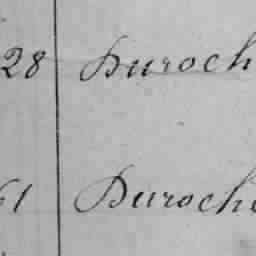 28 Duroch
61 Duroche